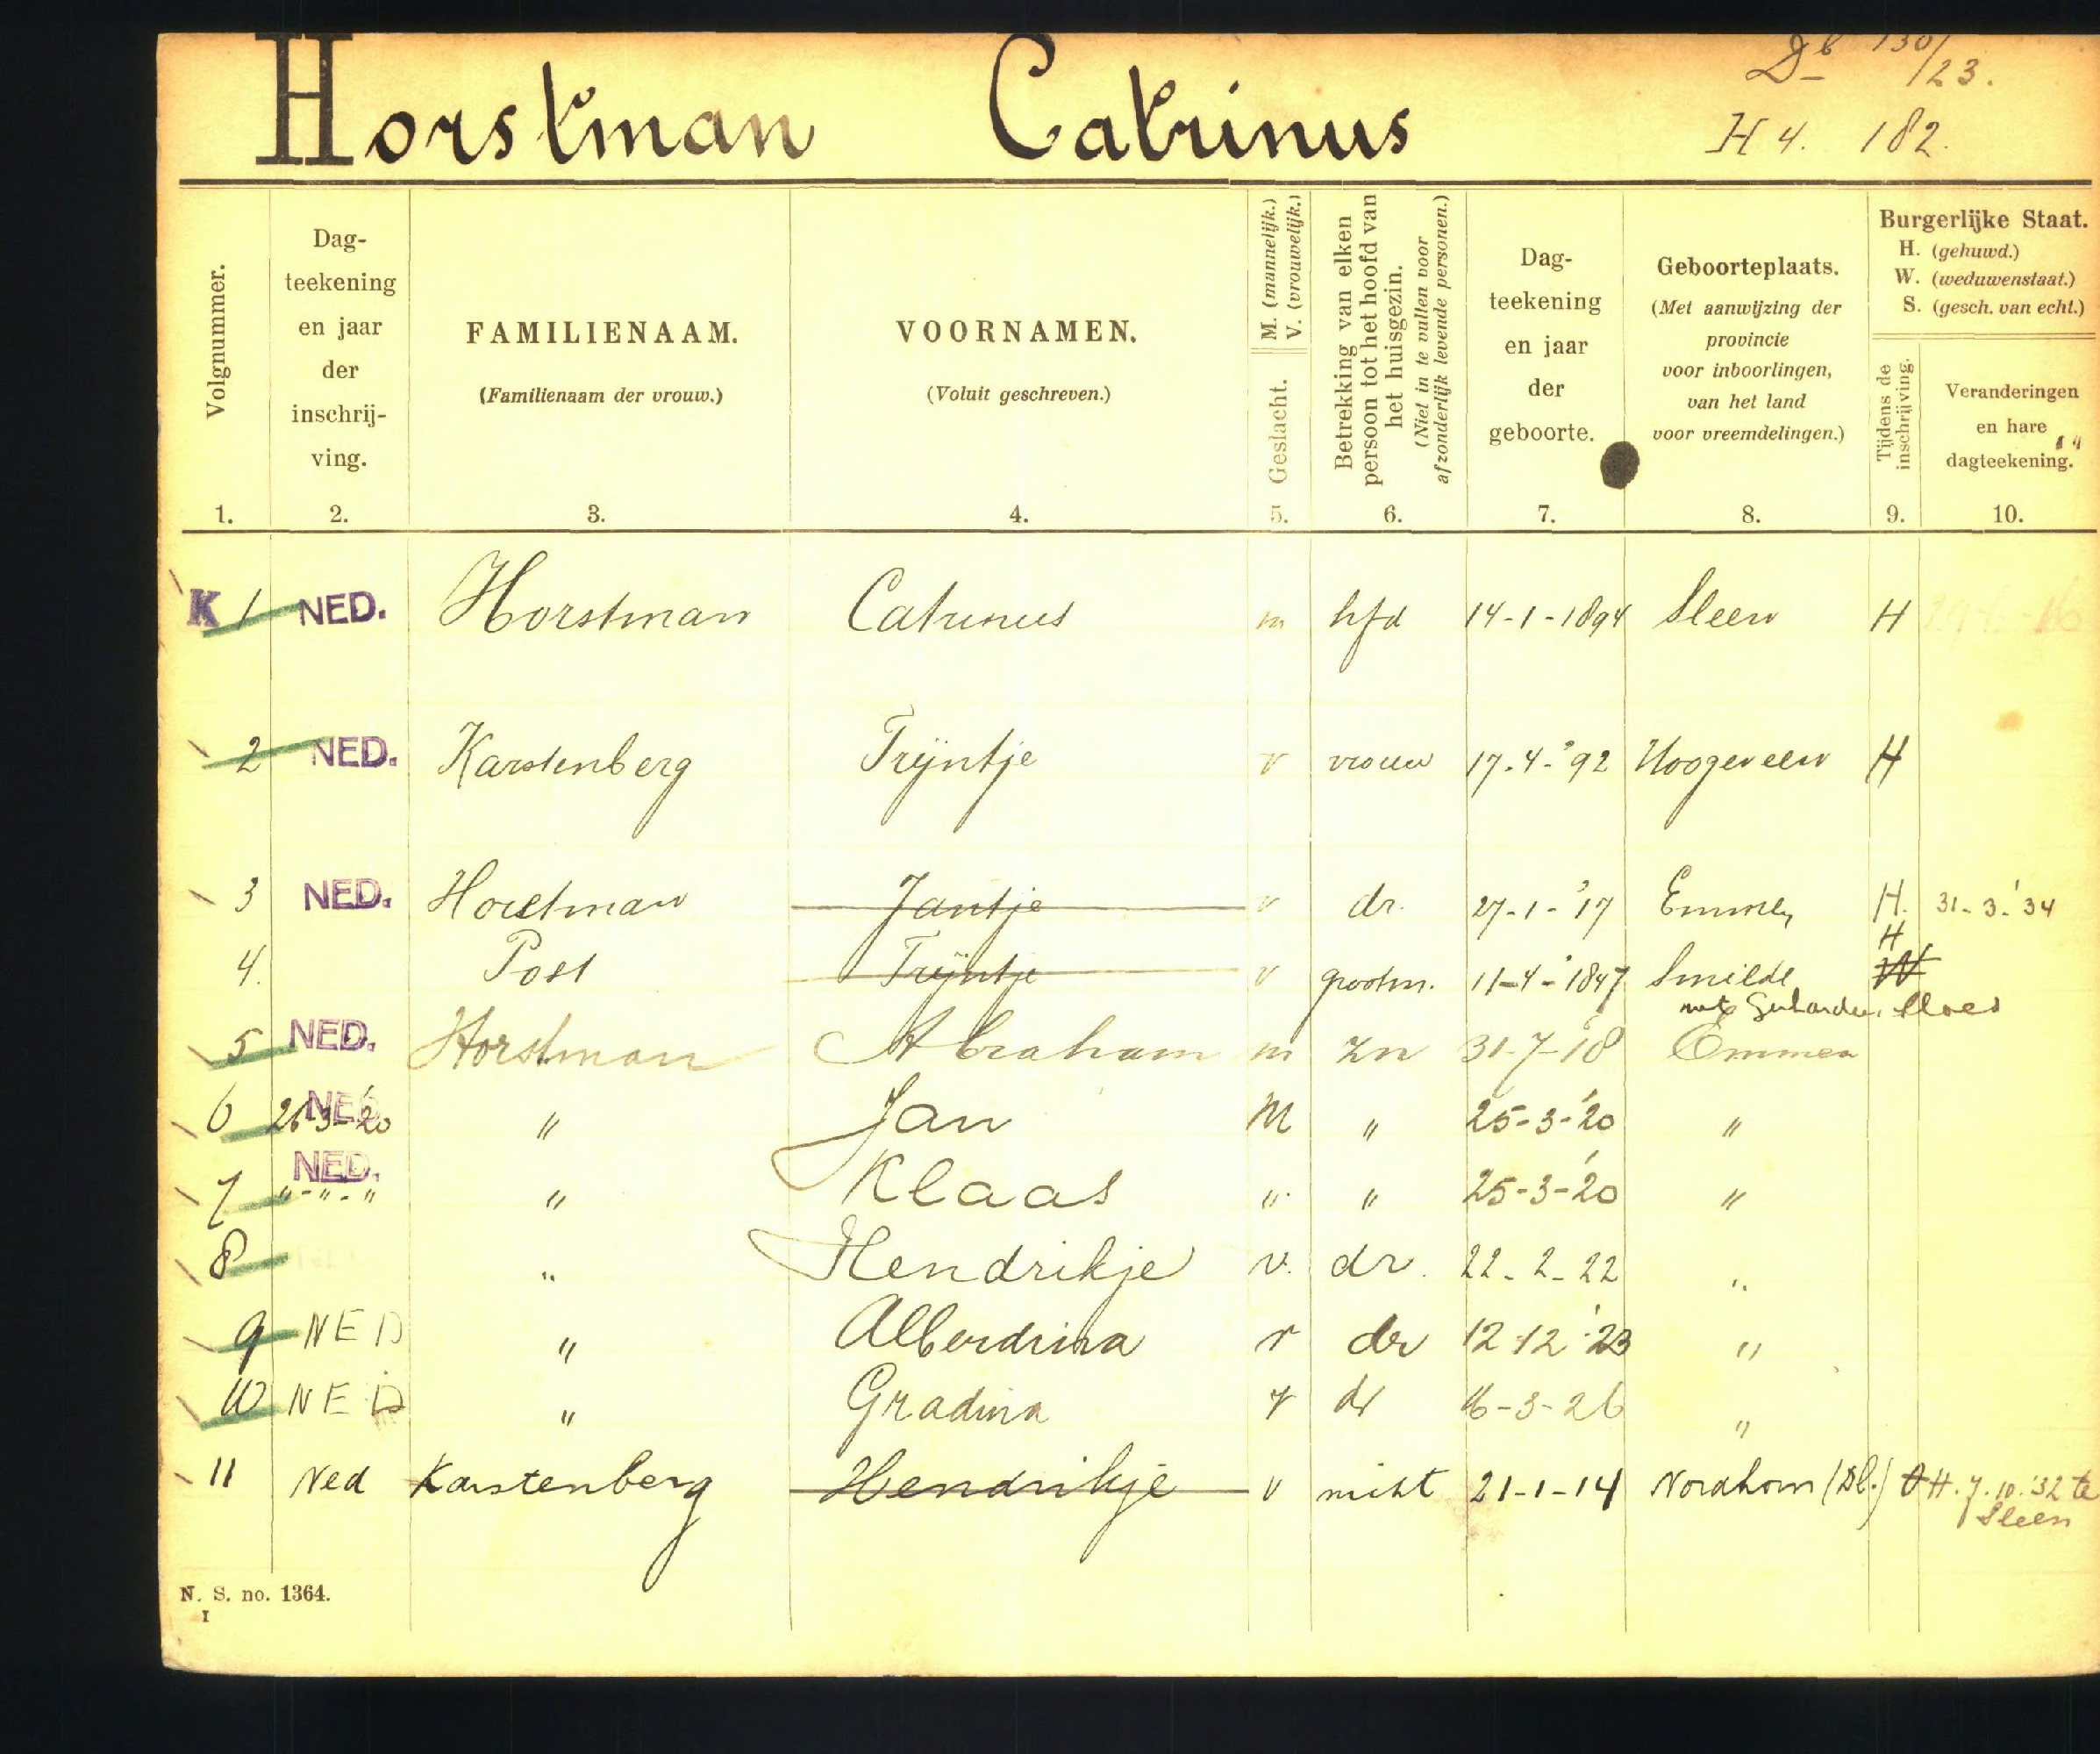 Db 130/23.
Horstman Catrinus
H 4. 182.
Volgnummer.
Dag-
teekening
en jaar
der
inschrij-
ving.
FAMILIENAAM.
(Familienaam der vrouw.)
VOORNAMEN.
(Voluit geschreven.)
M. (mannelijk.)
V. (vrouwelijk.)
Geslacht.
Betrekking van elken
persoon tot het hoofd van
het huisgezin.
(Niet in te vullen voor
afzonderlijk levende personen.)
Dag-
teekening
en jaar
der
geboorte.
Geboorteplaats.
(Met aanwijzing der
provincie
voor inboorlingen,
van het land
voor vreemdelingen.)
Burgerlijke Staat.
H. (gehuwd.)
W. (weduwenstaat.)
S. (gesch. van echt.)
Tijdens de
inschrijving.
Veranderingen
en hare
dagteekening.
1. 2. 3. 4. 5. 6. 7. 8. 9. 10.
K 1 NED. Horstman Catrinus m hfd 14-1-1894 Sleen H
2 NED. Karstenberg Trijntje v vrouw 17-4-'92 Hoogeveen H
3 NED. Horstman Jantje v dr. 27-1-'17 Emmen H. 31-3-'34
H
4. Post Trijntje v grootm. 11-4-1847 Smilde W
met
5 NED. Horstman Abraham m zn 31-7-'18 Emmen
6 NED. 26-3-'20 " Jan M " 25-3-'20 "
7 NED. "-"-" " Klaas " " 25-3-'20 "
8 " Hendrikje v. dr. 22-2-22 "
9 NED " Alberdina v dr 12-12-'23 "
10 NED " Gradina v dr 16-3-26 "
11 Ned Karstenberg Hendrikje v nicht 21-1-14 Nordhorn (Dl.) O H. 7.10.'32 te
Sleen
N. S. no. 1364.
I